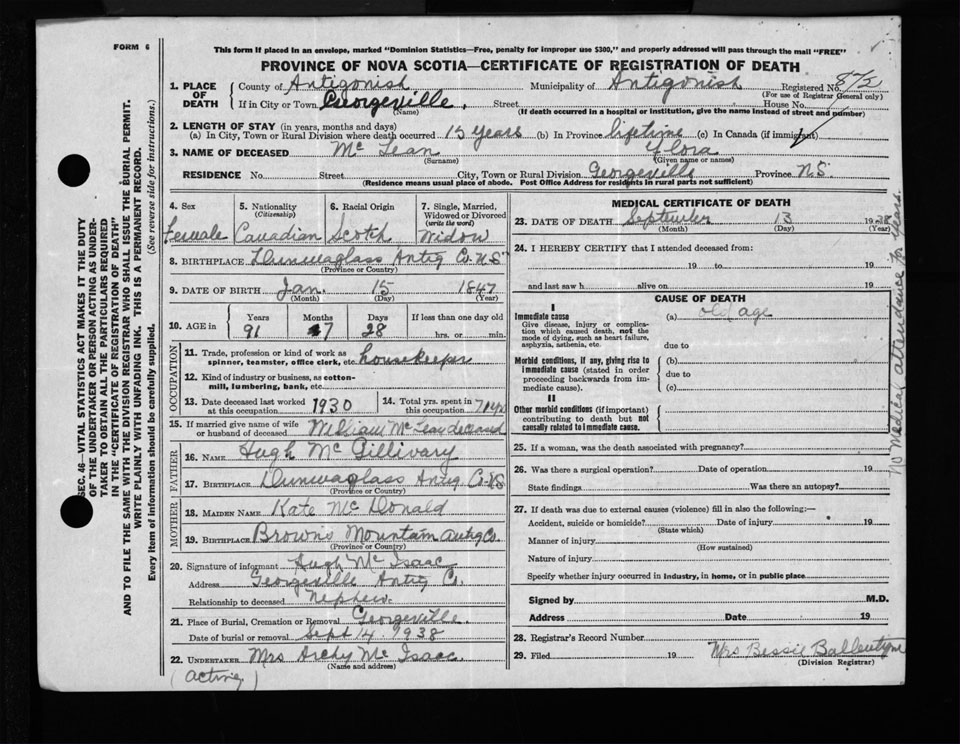 FORM 6
This form if placed in an envelope, marked "Dominion Statistics—Free, penalty for improper use $300," and properly addressed will pass through the mail "FREE"
PROVINCE OF NOVA SCOTIA—CERTIFICATE OF REGISTRATION OF DEATH
1. PLACE OF DEATH County of Antigonish Municipality of Antigonish Registered No.
(For use of Registrar General only)
If in City or Town Georgeville. Street House No.
(Name) (If death occurred in a hospital or institution, give the name instead of street and number)
2. LENGTH OF STAY (in years, months and days)
(a) In City, Town or Rural Division where death occurred 15 years (b) In Province lifetime (c) In Canada (if immigrant)
3. NAME OF DECEASED McLean Flora
(Surname) (Given name or names)
RESIDENCE No. Street City, Town or Rural Division Georgeville Province N.S.
(Residence means usual place of abode. Post Office Address for residents in rural parts not sufficient)
4. Sex 5. Nationality (Citizenship) 6. Racial Origin 7. Single, Married, Widowed or Divorced (write the word)
Female Canadian Scotch Widow
8. BIRTHPLACE Dunmaglass Antig Co. N.S.
(Province or Country)
9. DATE OF BIRTH Jan. 15 1847
(Month) (Day) (Year)
10. AGE in Years Months Days If less than one day old
91 7 28 hrs. or min.
OCCUPATION
11. Trade, profession or kind of work as spinner, teamster, office clerk, etc. housekeeper
12. Kind of industry or business, as cotton-mill, lumbering, bank, etc.
13. Date deceased last worked at this occupation 1930 14. Total yrs. spent in this occupation 71 yrs
15. If married give name of wife or husband of deceased William McLean deceased
FATHER
16. NAME Hugh McGillivary
17. BIRTHPLACE Dunmaglass Antig Co. NS
(Province or Country)
MOTHER
18. MAIDEN NAME Kate McDonald
19. BIRTHPLACE Browns Mountain Antig Co.
(Province or Country)
20. Signature of informant Hugh McIsaac
Address Georgeville Antig Co.
Relationship to deceased Nephew.
21. Place of Burial, Cremation or Removal Georgeville.
Date of burial or removal Sept 14. 1938
22. UNDERTAKER Mrs Archy McIsaac.
(Name and address)
(acting)
MEDICAL CERTIFICATE OF DEATH
23. DATE OF DEATH September 13 1938
(Month) (Day) (Year)
24. I HEREBY CERTIFY that I attended deceased from:
19 to 19
and last saw h alive on 19
CAUSE OF DEATH
I
Immediate cause (a) old age
Give disease, injury or complication which caused death, not the mode of dying, such as heart failure, asphyxia, asthenia, etc.
due to
Morbid conditions, if any, giving rise to immediate cause (stated in order proceeding backwards from immediate cause).
(b)
due to
(c)
II
Other morbid conditions (if important) contributing to death but not causally related to immediate cause.
25. If a woman, was the death associated with pregnancy?
26. Was there a surgical operation? Date of operation 19
State findings Was there an autopsy?
27. If death was due to external causes (violence) fill in also the following:—
Accident, suicide or homicide? Date of injury 19
(State which)
Manner of injury
(How sustained)
Nature of injury
Specify whether injury occurred in industry, in home, or in public place
Signed by M.D.
Address Date 19
28. Registrar's Record Number
29. Filed 19 Mrs Bessie Ballentyne
(Division Registrar)
No Medical attendance for years.
SEC. 46—VITAL STATISTICS ACT MAKES IT THE DUTY
OF THE UNDERTAKER OR PERSON ACTING AS UNDERTAKER TO OBTAIN ALL THE PARTICULARS REQUIRED
IN THE "CERTIFICATE OF REGISTRATION OF DEATH"
AND TO FILE THE SAME WITH THE DIVISION REGISTRAR WHO SHALL ISSUE THE BURIAL PERMIT.
WRITE PLAINLY WITH UNFADING INK. THIS IS A PERMANENT RECORD.
Every item of information should be carefully supplied. (See reverse side for instructions.)